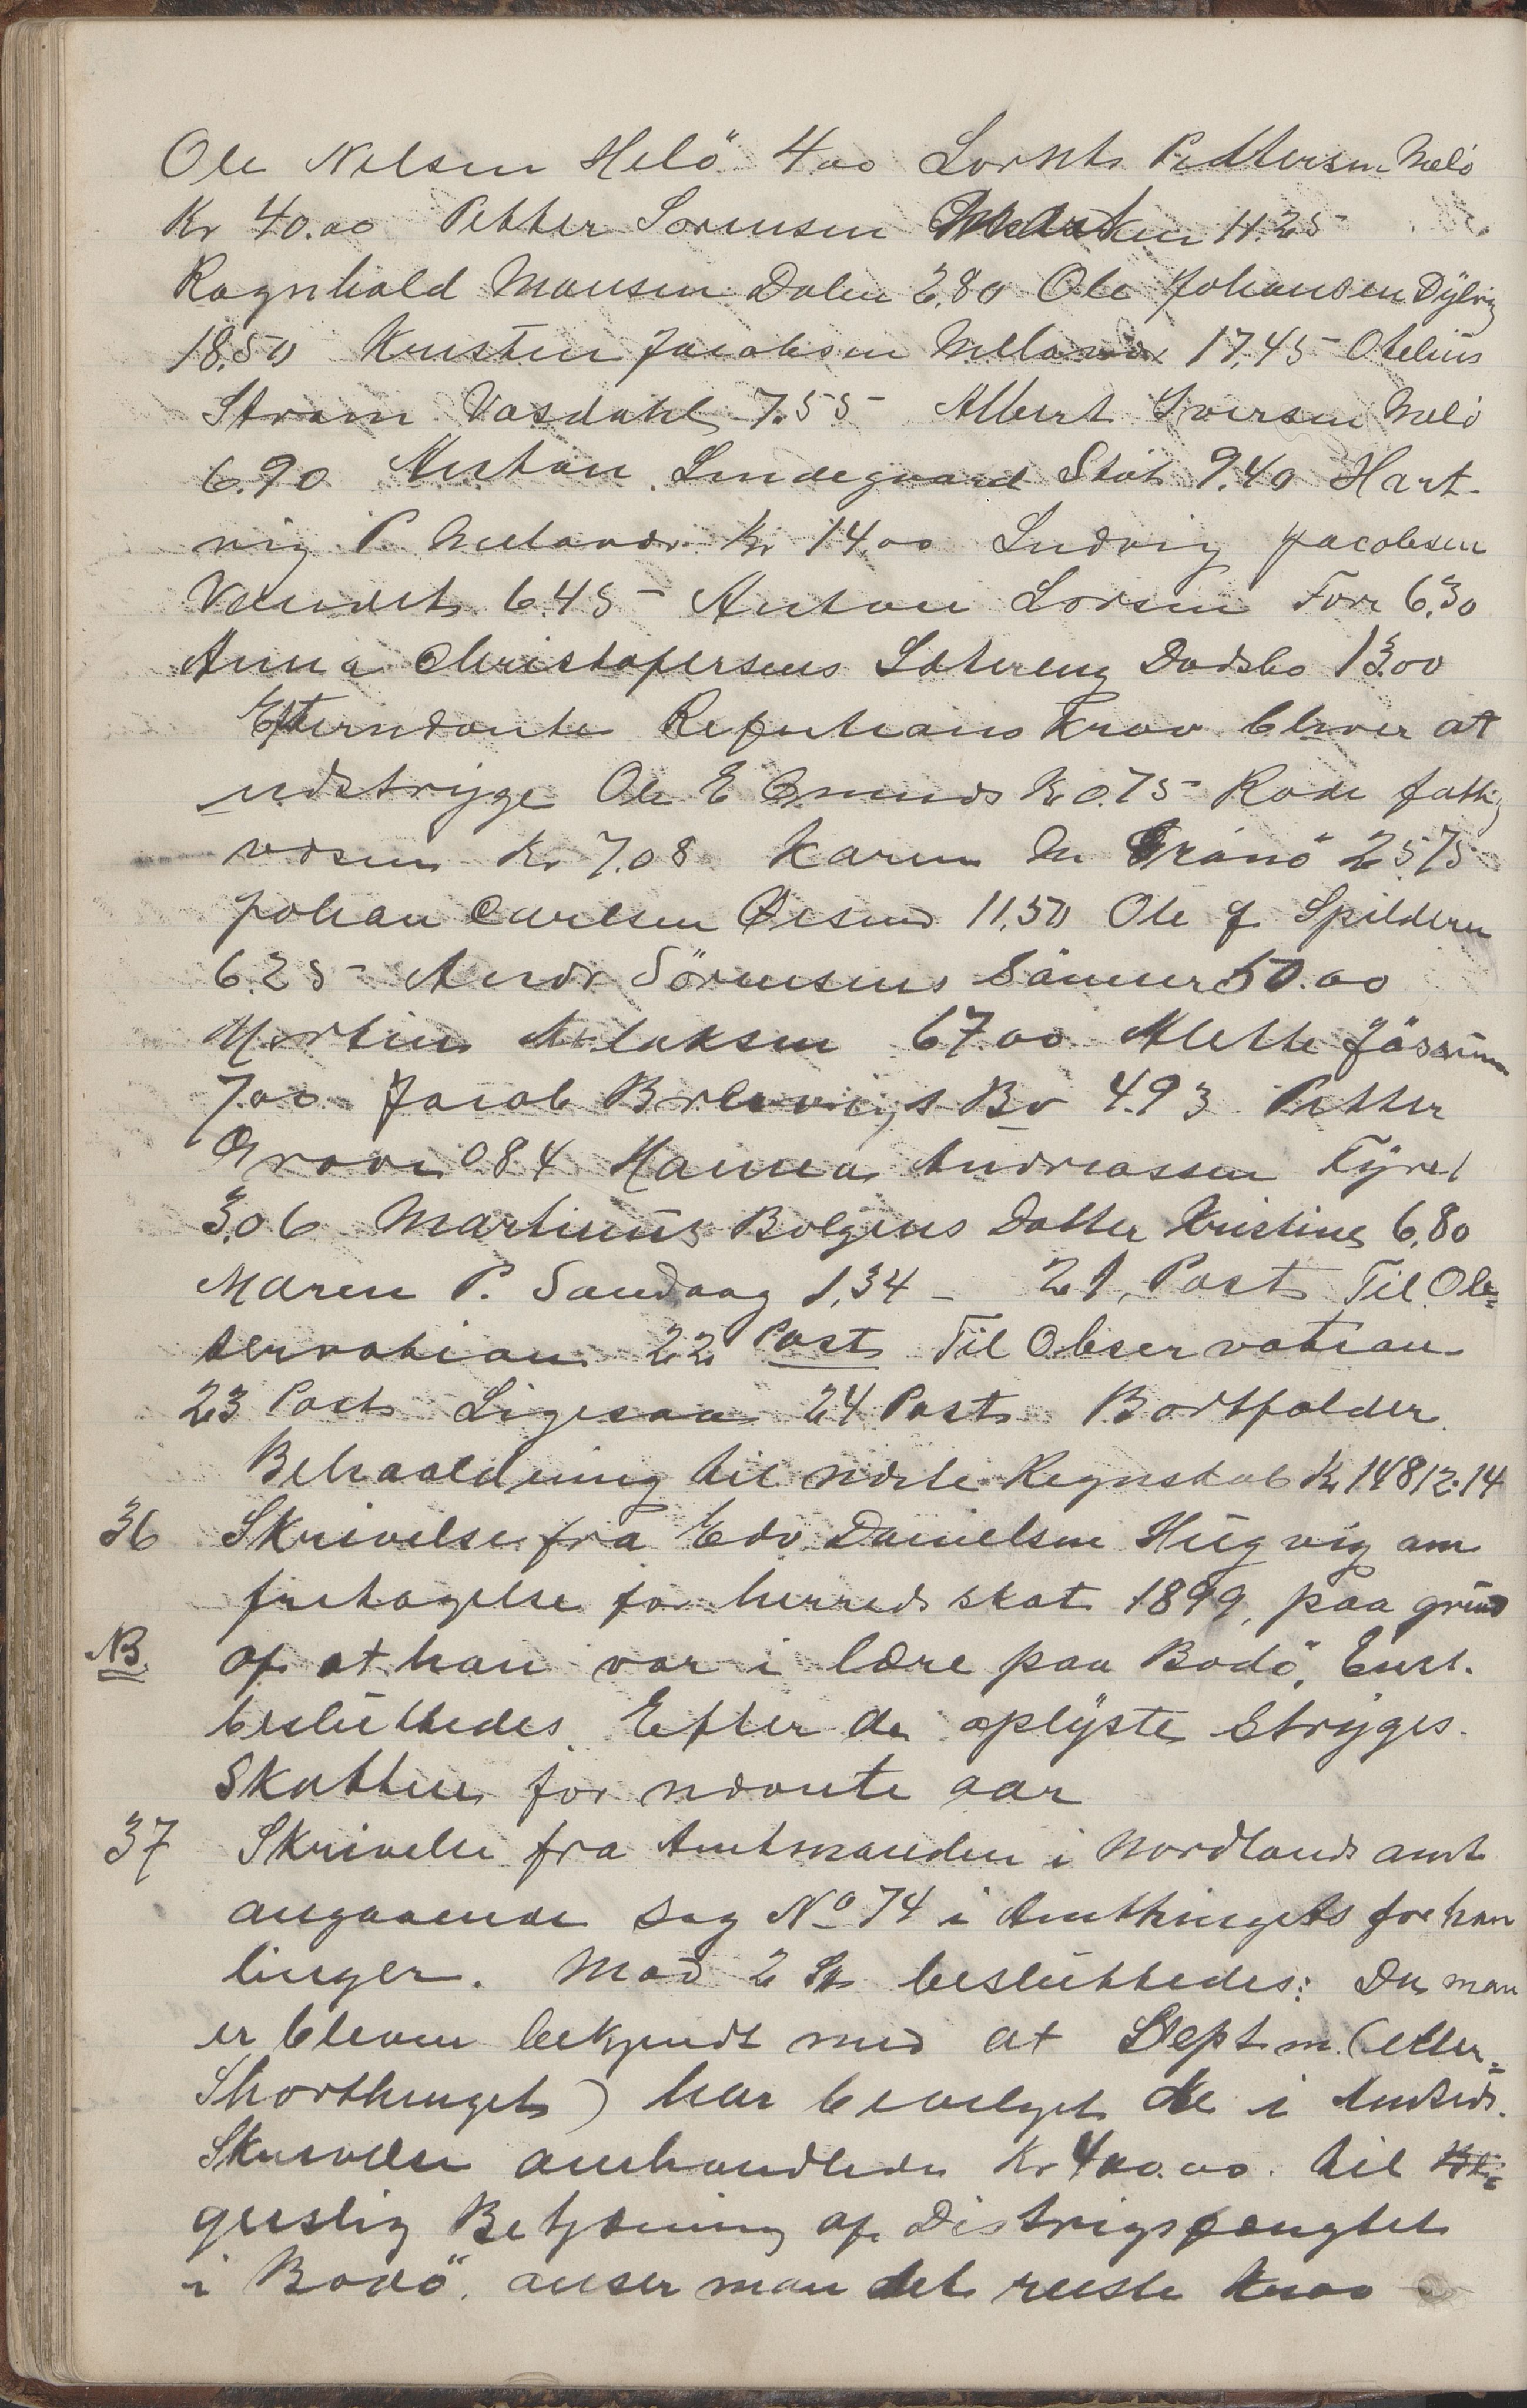 Ole Nelsen Helö 4.00 Lornts Pedtersen Melö
Kr 40.00 Petter Sorensen 11.25
Ragnhald Monsen Dalen 2,80 Ole Johansen Dylvig
18.50 Kristen Jacobsen Meløvær 17,45 Obelius
Strøm Vasdahl 7.55 Albert Iversen Melö
6.90 Anton Lindegaard Støt 9.40 Hart-
vig P. Meløvær Kr 14,00 Ludvig Jacobsen
Værndt 6.45 Anton Lorsen Forr 6.30
Anna Christofersens Sætereng Dødsbo 13.00
Efternævnte Repertisions Krav bliver at
udstryge Ole E Ømunds Kr 0.75 Rødø fattig
væsen Kr 7.08 Karen M Grånö 25.75
Johan Carlsen Øesund 11,50 Ole J. Spilderen
6.25 Andr Sörensens Sönner 50.00
Martin Aslaksen 67.00 Mette Jössund
7.00 Jacob Breivigs Bo 4.93 Petter
Grove 0.84 Hanna Andreassen Fyret
3.06 Martinus Bolgens Datter Kristine 6,80
Maren P. Sandaag 1,34 - 21, Post Til Ob=
servation 22 Post Til Observation
23 Post Ligesaa 24 Post Bortfalder
Behaaldning til næste Regnskab Kr 14812.14
36 Skrivelse fra Edv. Danielsen Hugvig om
fritagelse for herreds skat 1899, paa grund
NB. af at han var i lære paa Bodö, Enst.
besluttedes Efter de oplyste Stryges
Skatten for nævnte aar
37 Skrivelse fra Amtmanden i Nordlands amt
angaaende sag No 74 i Amthingets forhan
linger. Mod 2 St besluttedes: Da man
er bleven bekjendt med at Dept m. (eller=
Storthinget) har bevilget de i Amtets
Skrivelse omhandlede Kr 400.00. til
geislig Betjening af Distrigsfængslet
i Bodö. anser man det reiste Krav